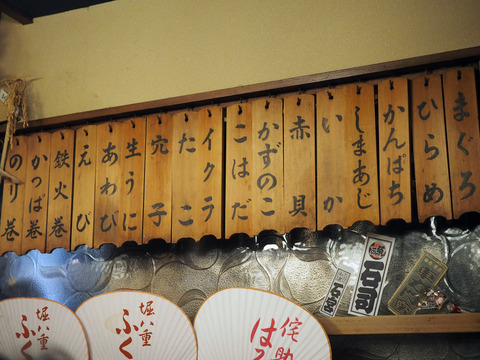 まぐろ
ひらめ
かんぱち
しまあじ
いか
赤貝
かずのこ
こはだ
イクラ
たこ
穴子
生うに
あわび
えび
鉄火巻
かっぱ巻
のり巻
堀八重
ふく
堀八重
ふく
侘助
は